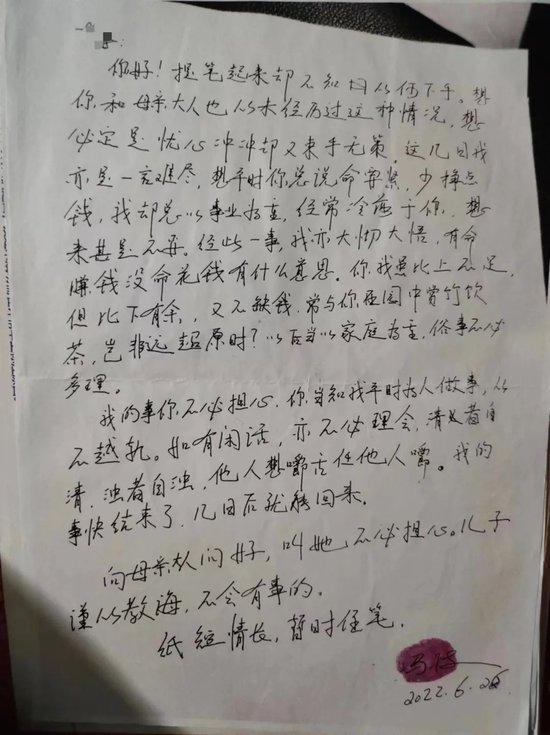 你好！提笔起来却不知由从何下手。想
你和母亲大人也从未经历过这种情况，想
必定是忧心冲冲却又束手无策。这几日我
亦是一言难尽，想平时你总说命要紧，少挣点
钱，我却总以事业为重，经常冷落于你，想
来甚是不再。经此一事，我亦大彻大悟，有命
赚钱没命花钱有什么意思。你我虽比上不足，
但比下有余，又不缺钱，常与你在园中赏竹饮
茶，岂非远超原时？以后当以家庭为重，俗事不必
多理。
我的事你不必担心，你当知我平时为人做事，从
不越轨。如有闲话，亦不必理会，清者自
清，浊者自浊，他人想嚼舌任他人嚼。我的
事快结束了，几日后就能回来。
向母亲大人问好，叫她不必担心。儿子
谨从教诲，不会有事的。
纸短情长，暂时住笔。
2022.6.26